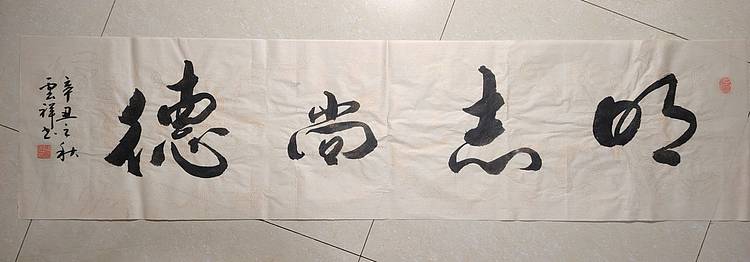 明志尚德
辛丑之秋
雲祥书